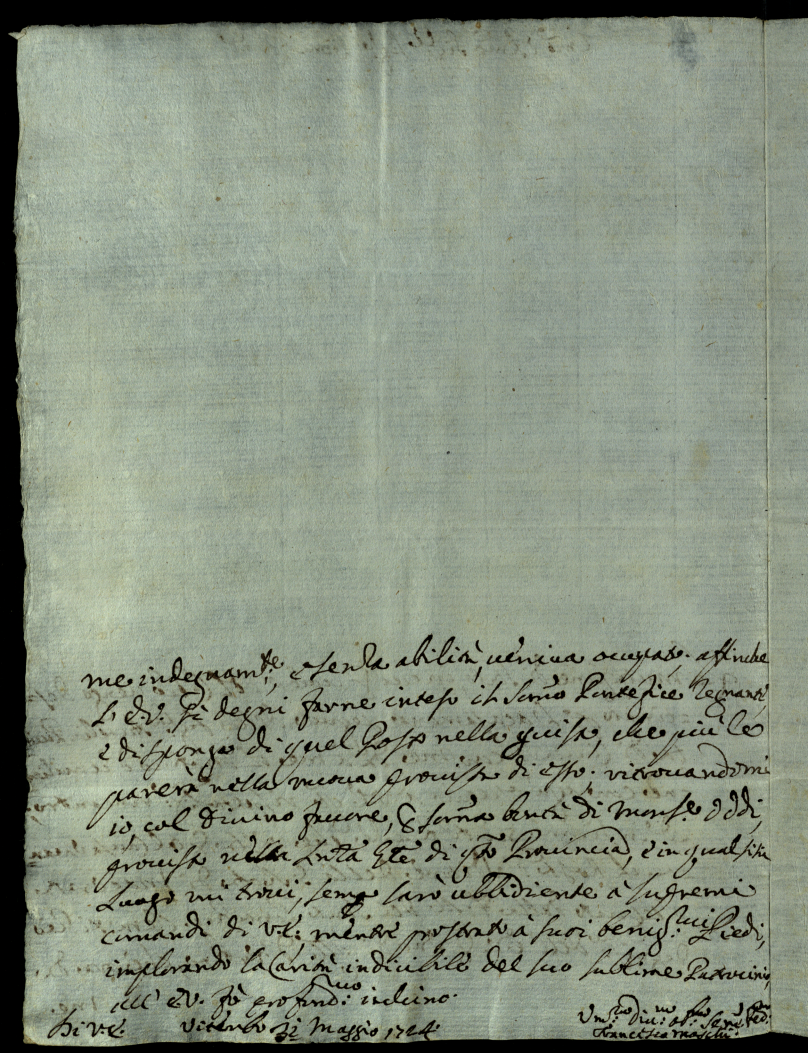 me indegnam.te, e senza abilità, veniva occupato; affinche
L'E.V. si degni farne inteso il Som̃o Pontefice Regnante,
e disponga di quel Posto nella guisa, che più le
parerà nella nuova provista di esso; ritrouandomi
io, col Divino fauore, e som̃a bontà di Monse. Oddi,
provisto nella di q̃to Provincia, e in qualsisia
Luogo mi trovi, semp̃ sarò ubbidiente a supremi
comandi di V.E.; mentre prostrato à suoi benig.mi Piedi,
implorando la Carità indicibile del suo sublime Patrocinio,
all' E.V. fò profond.mo inchino.
Di V.E. Viterbo 31 Maggio 1724
Um.mo div.mo ob.mo Ser.re
Francesco